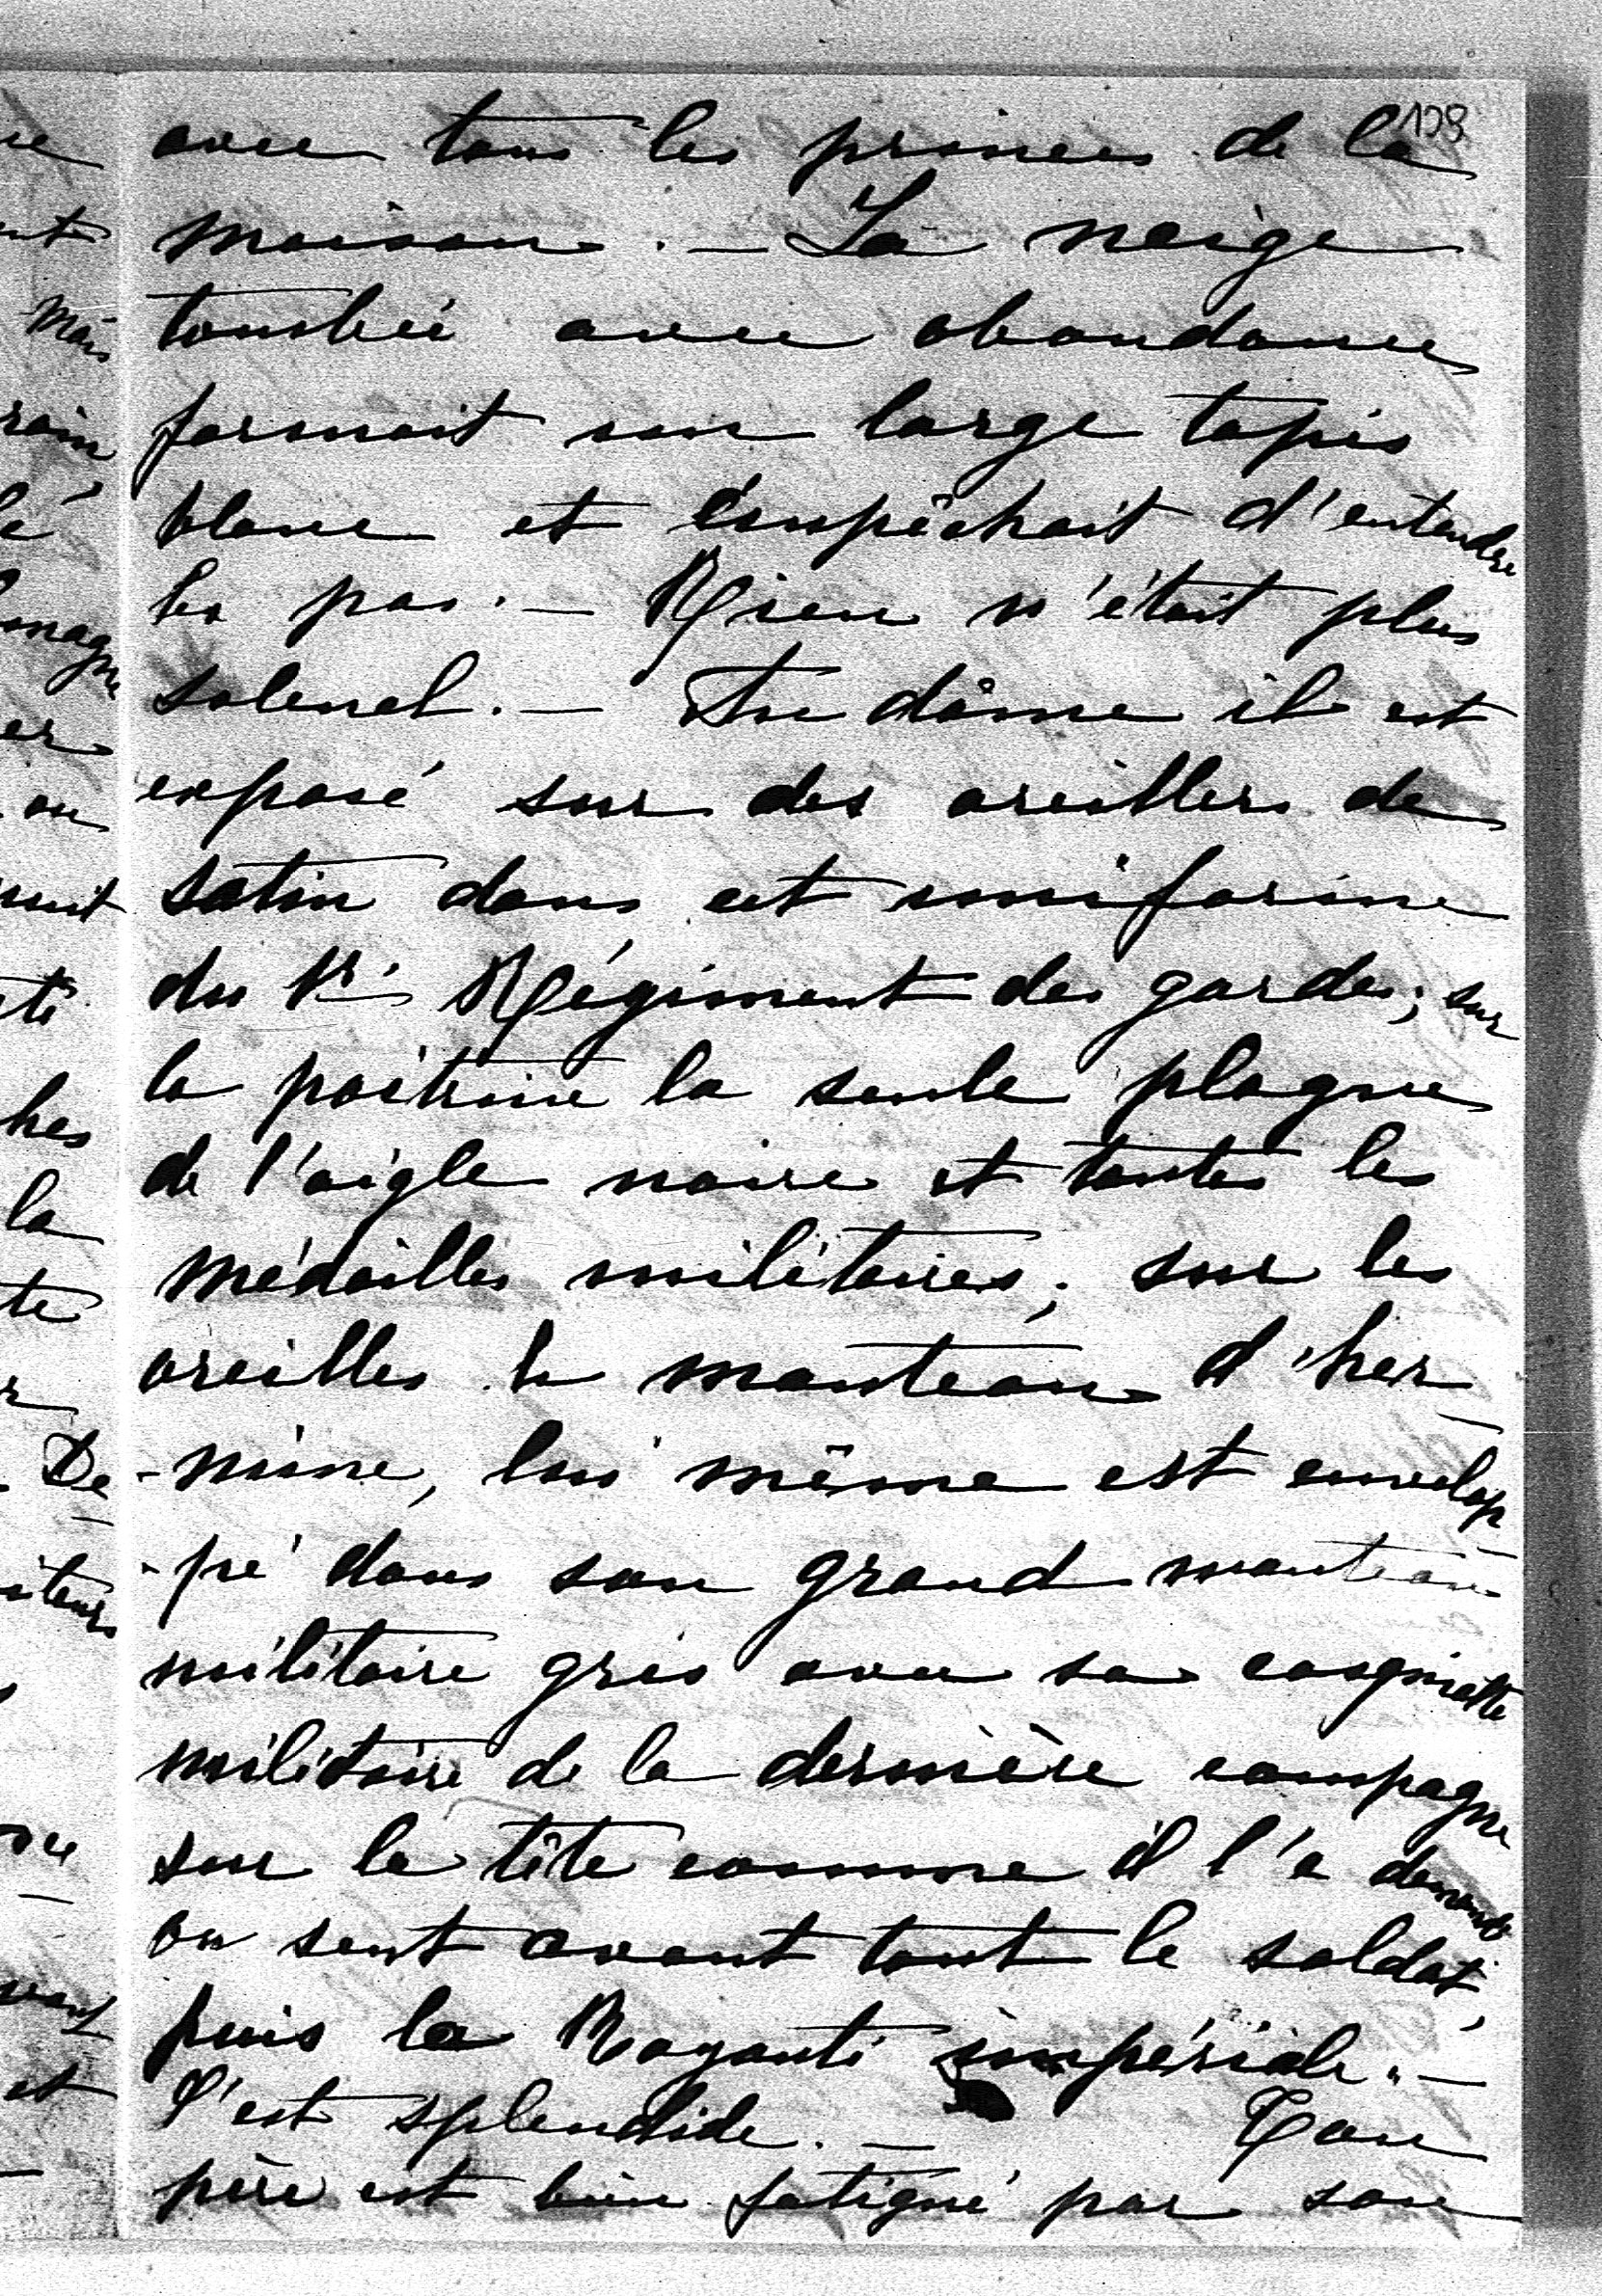 139
avec tous les princes de la
maison. — La neige
tombée avec abondance
formait son large tapis
blanc et empêchait d'entendre
les pas. — Rien n'était plus
solenel. — Au dôme il est
exposé sur des oreillers de
satin dans cet uniforme
du 1r Régiment des gardes; sur
la poitrine la seule plaque
de l'aigle noire et toutes les
médailles militaires; sur les
oreilles le manteau d'her-
-mine, lui même est envelop-
-pé dans son grand manteau
militaire gris avec sa casquette
militaire de la dernière campagne
sur la tête comme il l'a demandé
on sent avant tout le soldat,
puis la Royauté impériale. —
C'est splendide. — Ton
père est bien fatigué par son